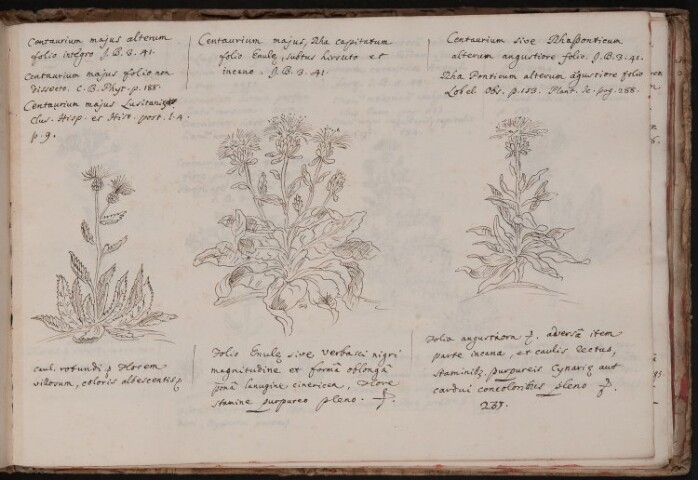 Centaurium majus alterum
folio integro J. B. 3. 41.
Centaurium majus folio non
dissecto. C. B. Phyt. p. 188.
Centaurium majus Lusitanic
Clus. Hisp. et Hist. post. l. 4.
p. 9.
caul. rotundi
villosum, coloris albescentis
Centaurium majus, Rha capitatum
folio Enulę, subtus hirsuto et
incano. J. B. 3. 41.
Folio Enulę sive verbasci nigri
magnitudine et formâ oblongâ
lanugine cinericea, flore
stamine purpureo pleno.
Centaurium sive Rhaponticum
alterum angustiore folio. J. B. 3. 41.
Rha Ponticum alterum āgustiore folio
Lobel. Obs. p. 153. Plant. Ic. pag. 288.
Folia adversâ item
parte incana, et caulis rectus,
purpureis Cynarię aut
cardui concoloribus pleno